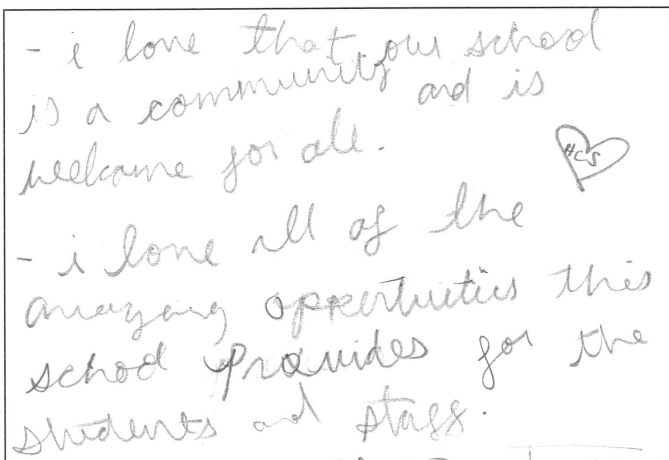 - i love that our school
is a community and is
welcome for all.
HCS
- i love all of the
amazing oppertuities this
school provides for the
students and staff.